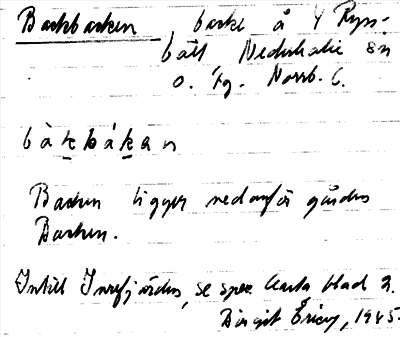 Backbacken, backe å 4 Ryss-
bält Nederkalix sn
o. tg. Norrb. l.
bàkbákan
Backen ligger nedanför gården
Backen.
Intill Innefjärden, se spec. karta blad 2.
Birgit Ericy, 1945.